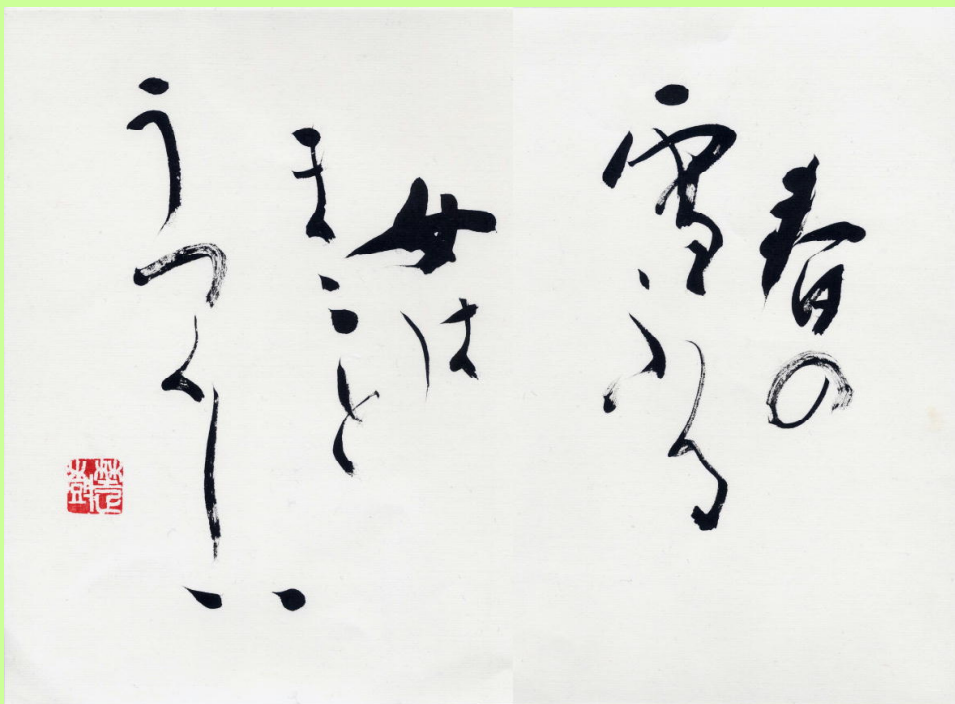 春の
雪ふる
女は
まこと
うつくしい